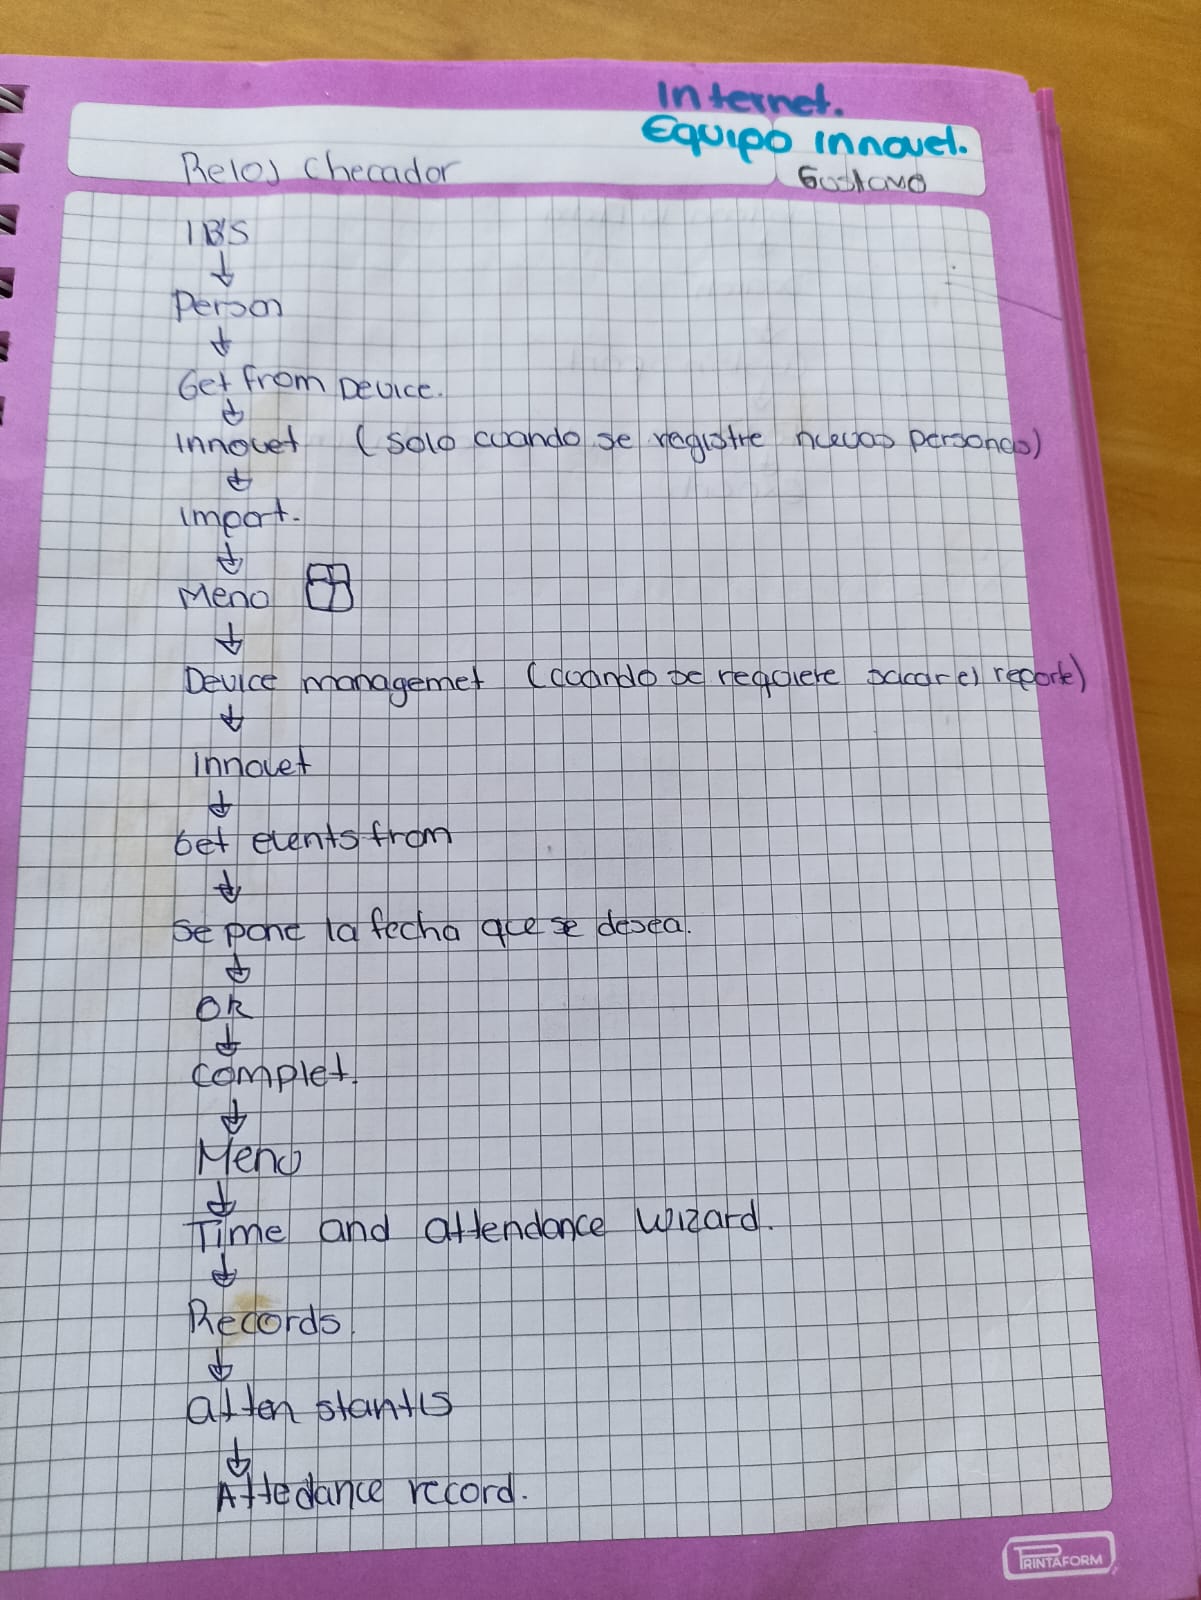 Internet.
Equipo innovet.
Reloj checador
Gustavo
IBS
Person
Get from Device.
Innovet (solo cuando se registre nuevas personas)
Import.
Menu
Device managemet (cuando se requiere sacar el reporte)
Innovet
Get events from
Se pone la fecha que se desea.
OK
Complet.
Menu
Time and attendance wizard.
Records.
atten stantis
Attedance record.
PRINTAFORM